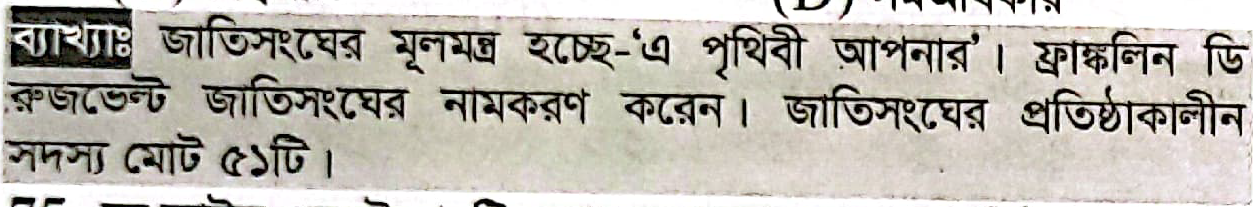 ব্যাখ্যাঃ জাতিসংঘের মূলমন্ত্র হচ্ছে-‘এ পৃথিবী আপনার’। ফ্রাঙ্কলিন ডি
রুজভেল্ট জাতিসংঘের নামকরণ করেন। জাতিসংঘের প্রতিষ্ঠাকালীন
সদস্য মোট ৫১টি।